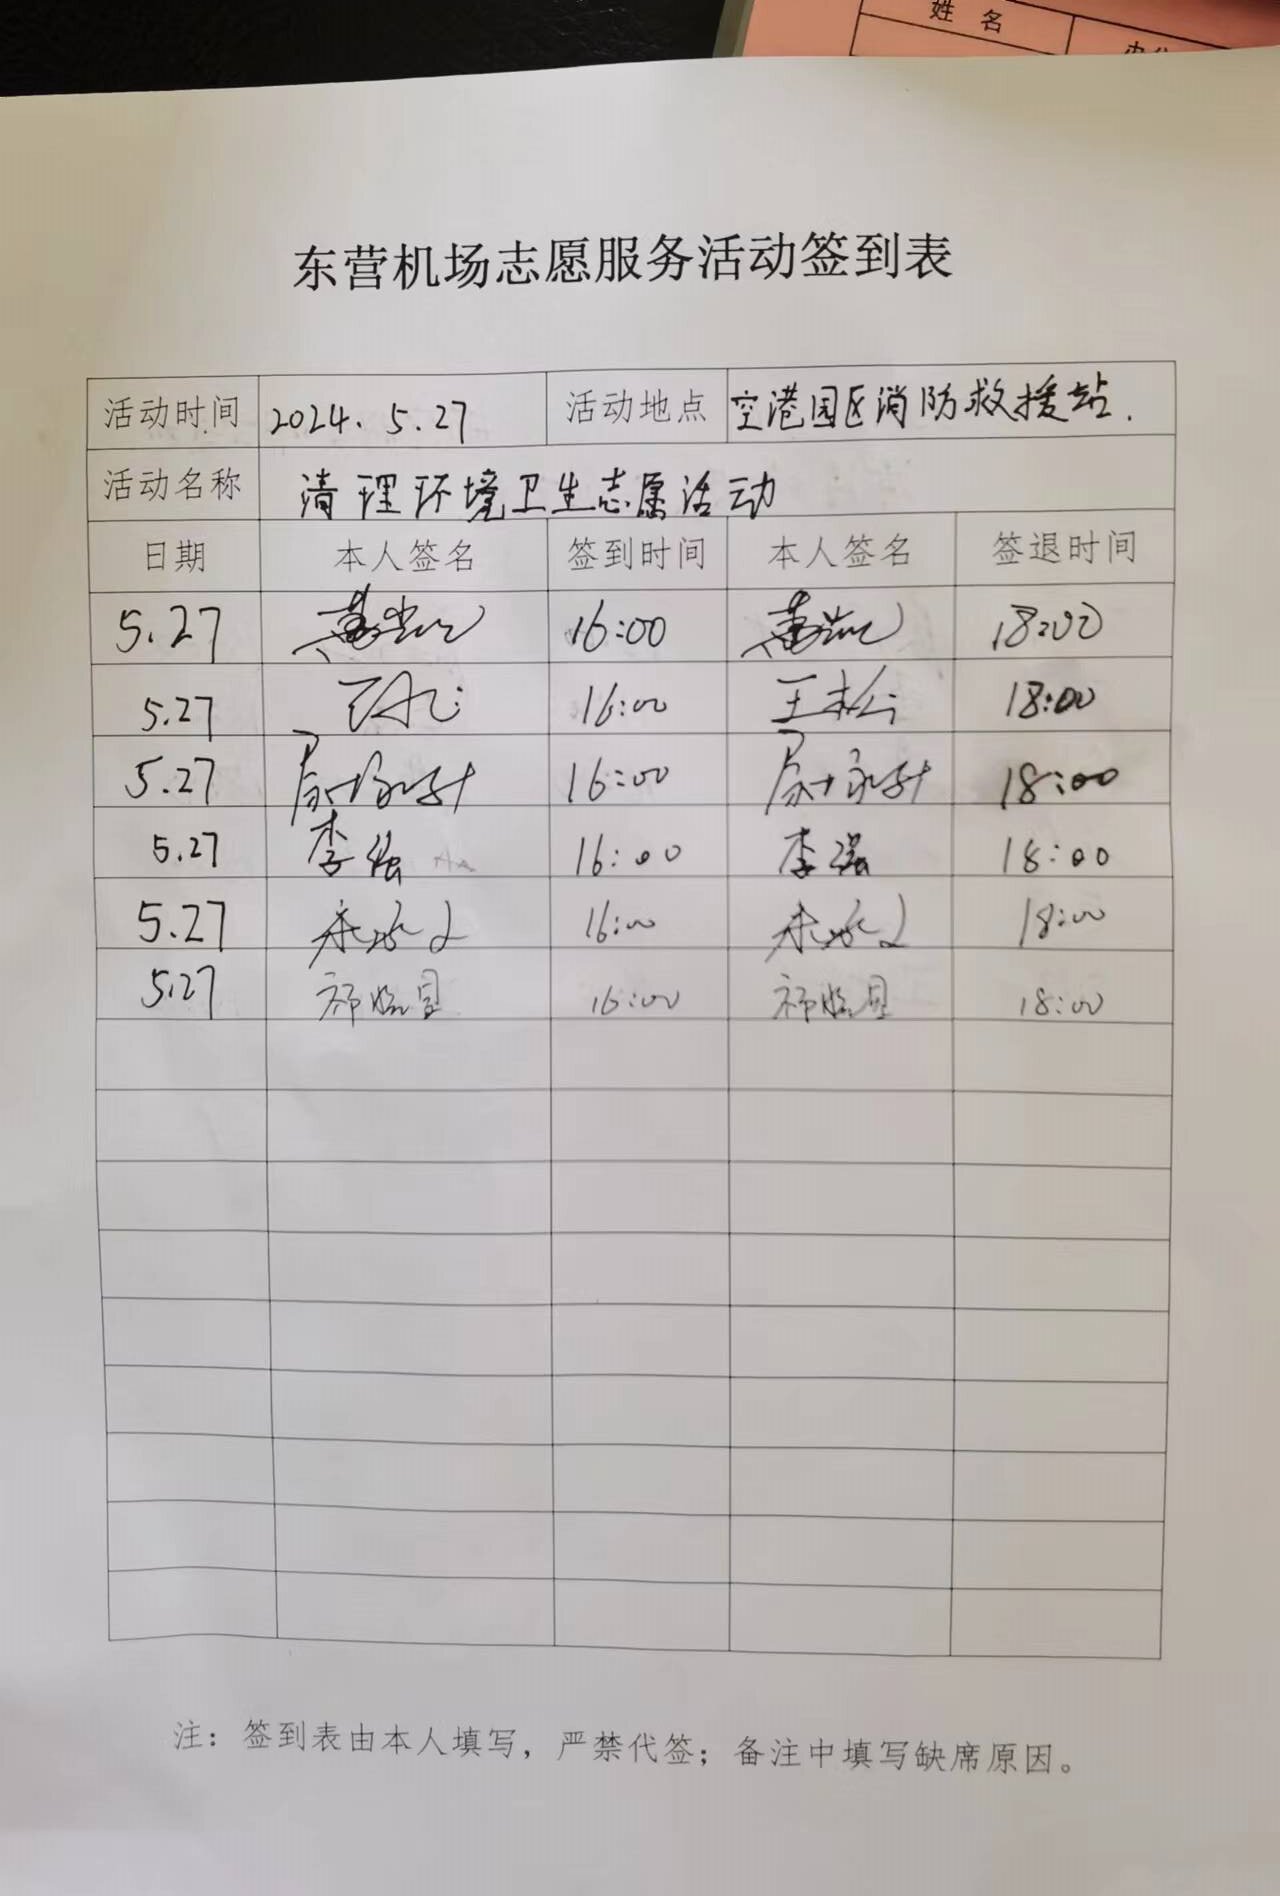 姓 名
东营机场志愿服务活动签到表
活动时间 2024.5.27 活动地点 空港园区消防救援站.
活动名称 清理环境卫生志愿活动
日期 本人签名 签到时间 本人签名 签退时间
5.27 16:00 18:00
5.27 王松 16:00 王松 18:00
5.27 16:00 18:00
5.27 李强 16:00 李强 18:00
5.27 16:00 18:00
5.27 16:00 18:00
注：签到表由本人填写，严禁代签；备注中填写缺席原因。